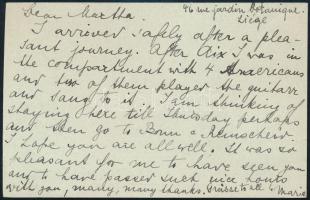 46 rue jardin botanique.
Liège
Dear Martha.
I arrived safely after a plea-
sant journey. After Aix I was in
the compartment with 4 Americans
and two of them played the guitarr
and sang to it. I am thinking of
staying here till Thursday perhaps
and then go to Bonn & Remscheid
I hope you are all well. It was so
pleasant for me to have seen you
and to have passed such nice hours
with you, many, many thanks. Grüsse to all & Marie